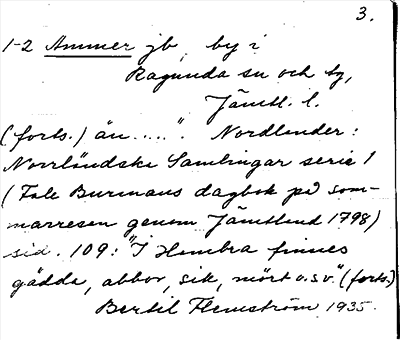 3.
1-2 Ammer jb, by i
Ragunda sn och tg,
Jämtl. l.
(forts.) än....". Nordlander:
Norrländska Samlingar serie 1
(Fale Burmans dagbok på som-
marresan genom Jämtland 1798)
sid. 109: "I Hembra finnes
gädda, abbor, sik, mört o.s.v." (forts.)
Bertil Flemström 1935.